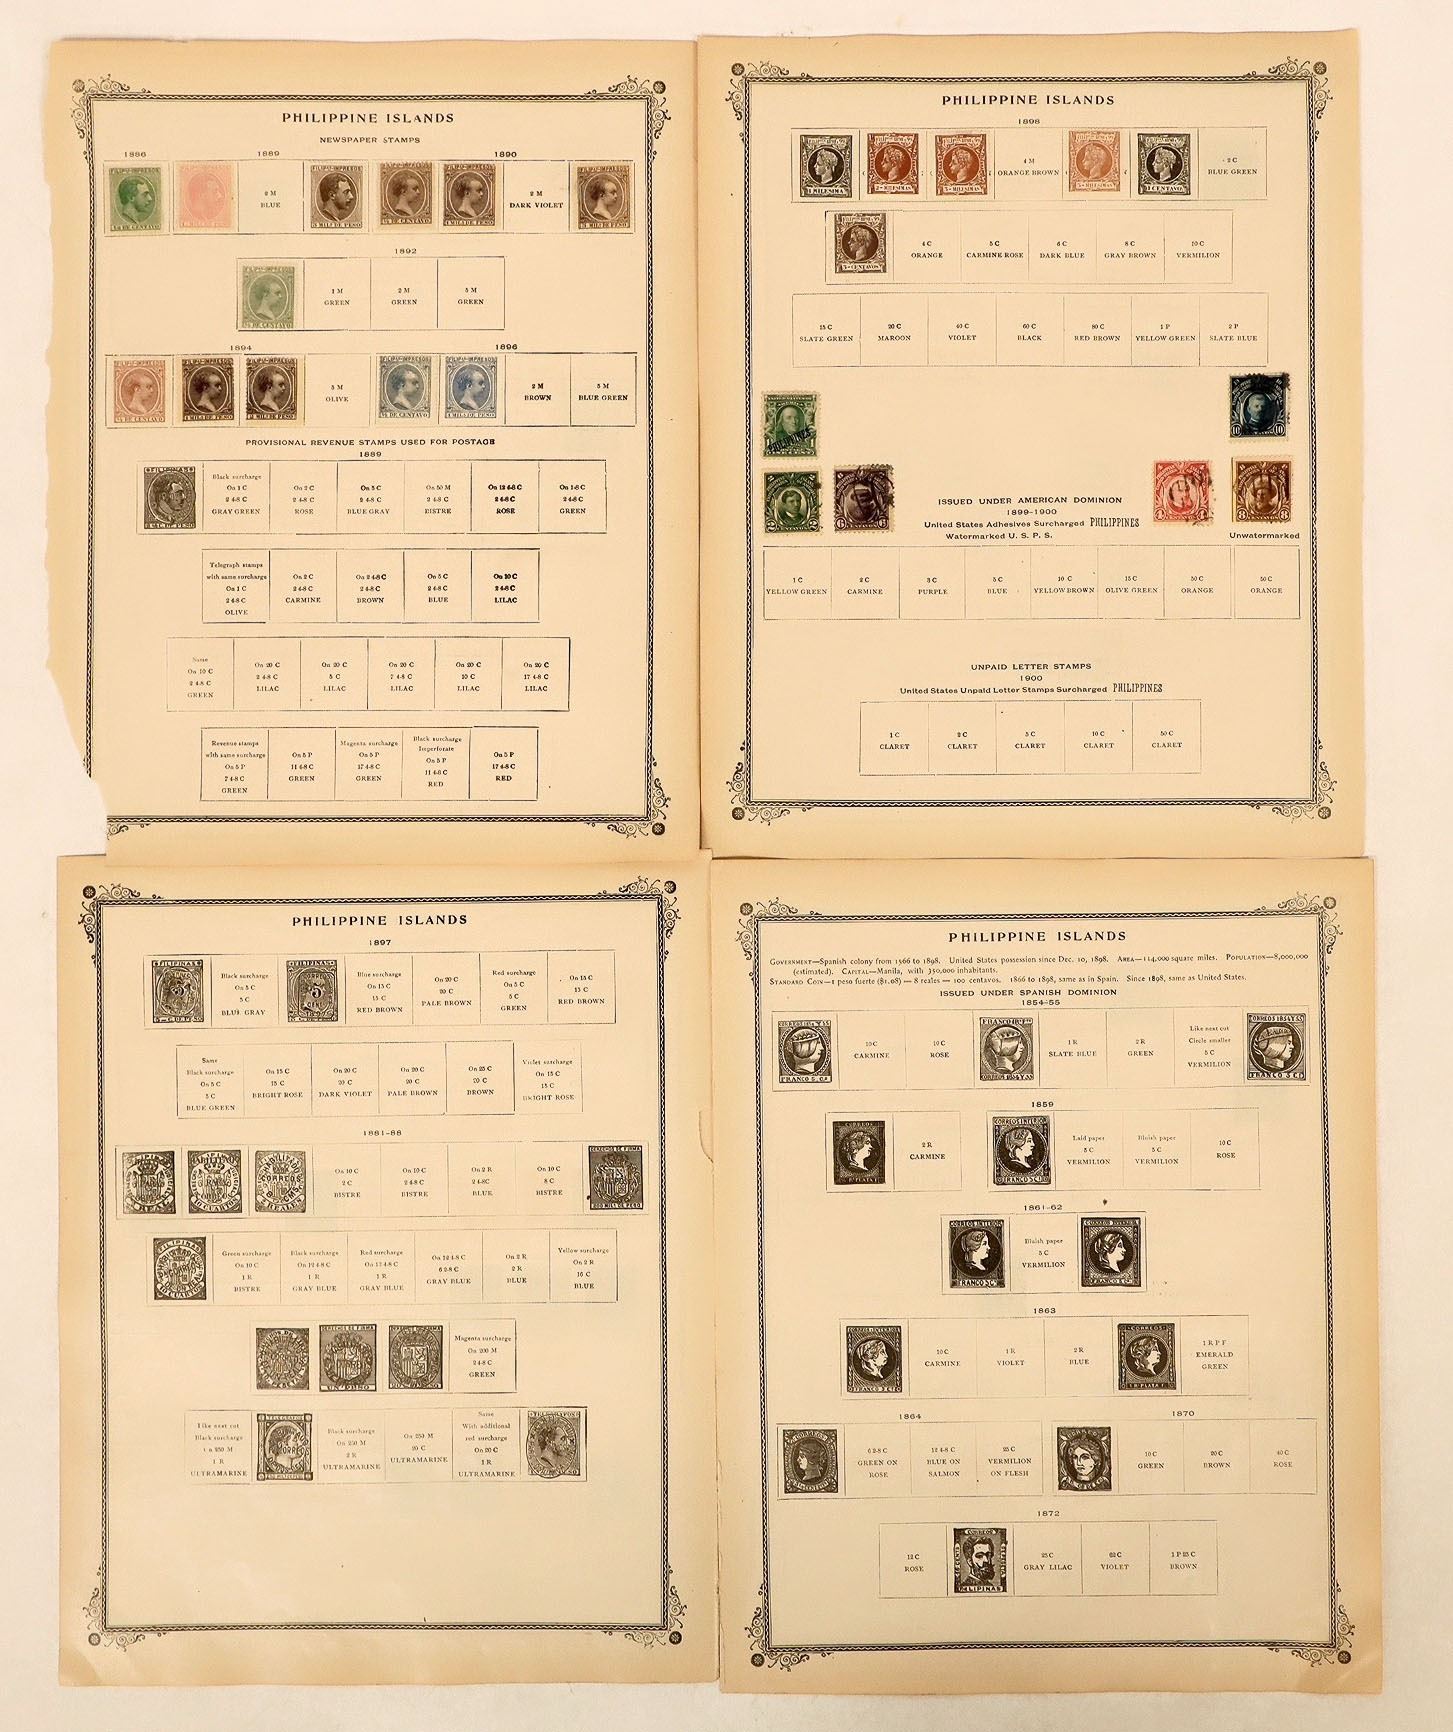 PHILIPPINE ISLANDS
NEWSPAPER STAMPS
1886 1889 1890
2 M
BLUE
2 M
DARK VIOLET
1892
1 M
GREEN
2 M
GREEN
5 M
GREEN
1894 1896
5 M
OLIVE
2 M
BROWN
5 M
BLUE GREEN
PROVISIONAL REVENUE STAMPS USED FOR POSTAGE
1889
Black surcharge
On 1 C
2 4-8 C
GRAY GREEN
On 2 C
2 4-8 C
ROSE
On 5 C
2 4-8 C
BLUE GRAY
On 50 M
2 4-8 C
BISTRE
On 12 4-8 C
2 4-8 C
ROSE
On 1-8 C
2 4-8 C
GREEN
Telegraph stamps
with same surcharge
On 1 C
2 4-8 C
OLIVE
On 2 C
2 4-8 C
CARMINE
On 2 4-8 C
2 4-8 C
BROWN
On 5 C
2 4-8 C
BLUE
On 10 C
2 4-8 C
LILAC
Same
On 10 C
2 4-8 C
GREEN
On 20 C
2 4-8 C
LILAC
On 20 C
5 C
LILAC
On 20 C
7 4-8 C
LILAC
On 20 C
10 C
LILAC
On 20 C
17 4-8 C
LILAC
Revenue stamps
with same surcharge
On 5 P
7 4-8 C
GREEN
On 5 P
11 4-8 C
GREEN
Magenta surcharge
On 5 P
17 4-8 C
GREEN
Black surcharge
Imperforate
On 5 P
11 4-8 C
RED
On 5 P
17 4-8 C
RED
PHILIPPINE ISLANDS
1898
1 MILESIMA
2 MILESIMAS
3 MILESIMAS
4 M
ORANGE BROWN
5 MILESIMAS
1 CENTAVO
2 C
BLUE GREEN
3 CENTAVOS
4 C
ORANGE
5 C
CARMINE ROSE
6 C
DARK BLUE
8 C
GRAY BROWN
10 C
VERMILION
15 C
SLATE GREEN
20 C
MAROON
40 C
VIOLET
60 C
BLACK
80 C
RED BROWN
1 P
YELLOW GREEN
2 P
SLATE BLUE
PHILIPPINES
ISSUED UNDER AMERICAN DOMINION
1899-1900
United States Adhesives Surcharged PHILIPPINES
Watermarked U. S. P. S.
Unwatermarked
1 C
YELLOW GREEN
2 C
CARMINE
3 C
PURPLE
5 C
BLUE
10 C
YELLOW BROWN
15 C
OLIVE GREEN
50 C
ORANGE
50 C
ORANGE
UNPAID LETTER STAMPS
1900
United States Unpaid Letter Stamps Surcharged PHILIPPINES
1 C
CLARET
2 C
CLARET
5 C
CLARET
10 C
CLARET
50 C
CLARET
PHILIPPINE ISLANDS
1897
FILIPINAS
Black surcharge
On 5 C
5 C
BLUE GRAY
FILIPINAS
Blue surcharge
On 15 C
15 C
RED BROWN
On 20 C
20 C
PALE BROWN
Red surcharge
On 5 C
5 C
GREEN
On 15 C
15 C
RED BROWN
Same
Black surcharge
On 5 C
5 C
BLUE GREEN
On 15 C
15 C
BRIGHT ROSE
On 20 C
20 C
DARK VIOLET
On 20 C
20 C
PALE BROWN
On 25 C
20 C
BROWN
Violet surcharge
On 15 C
15 C
BRIGHT ROSE
1881-88
On 10 C
2 C
BISTRE
On 10 C
2 4-8 C
BISTRE
On 2 R
2 4-8C
BLUE
On 10 C
8 C
BISTRE
DERECHOS DE FIRMA
FILIPINAS
Green surcharge
On 10 C
1 R
BISTRE
Black surcharge
On 12 4-8 C
1 R
GRAY BLUE
Red surcharge
On 12 4-8 C
1 R
GRAY BLUE
On 12 4-8 C
6 2-8 C
GRAY BLUE
On 2 R
2 R
BLUE
Yellow surcharge
On 2 R
16 C
BLUE
DERECHOS DE FIRMA
Magenta surcharge
On 200 M
2 4-8 C
GREEN
Like next cut
Black surcharge
On 250 M
1 R
ULTRAMARINE
TELEGRAFOS
Black surcharge
On 250 M
2 R
ULTRAMARINE
On 250 M
20 C
ULTRAMARINE
Same
With additional
red surcharge
On 20 C
1 R
ULTRAMARINE
PHILIPPINE ISLANDS
GOVERNMENT—Spanish colony from 1566 to 1898. United States possession since Dec. 10, 1898. AREA—114,000 square miles. POPULATION—8,000,000
(estimated). CAPITAL—Manila, with 350,000 inhabitants.
STANDARD COIN—1 peso fuerte ($1.08) = 8 reales = 100 centavos. 1866 to 1898, same as in Spain. Since 1898, same as United States.
ISSUED UNDER SPANISH DOMINION
1854-55
CORREOS 1854 Y 55
FRANCO 5 Cs
10 C
CARMINE
10 C
ROSE
CORREOS 1854 Y 55
1 R
SLATE BLUE
2 R
GREEN
Like next cut
Circle smaller
5 C
VERMILION
CORREOS 1854 Y 55
FRANCO 5 C
1859
CORREOS
2 R
CARMINE
CORREOS INTERIOR
FRANCO 5 C
Laid paper
5 C
VERMILION
Bluish paper
5 C
VERMILION
10 C
ROSE
1861-62
CORREOS INTERIOR
FRANCO 5 C
Bluish paper
5 C
VERMILION
CORREOS INTERIOR
FRANCO 5 C
1863
CORREOS INTERIOR
10 C
CARMINE
1 R
VIOLET
2 R
BLUE
CORREOS
1 R P F
EMERALD
GREEN
1864 1870
CORREOS
6 2-8 C
GREEN ON
ROSE
12 4-8 C
BLUE ON
SALMON
25 C
VERMILION
ON FLESH
10 C
GREEN
20 C
BROWN
40 C
ROSE
1872
12 C
ROSE
CORREOS
FILIPINAS
25 C
GRAY LILAC
62 C
VIOLET
1 P 25 C
BROWN